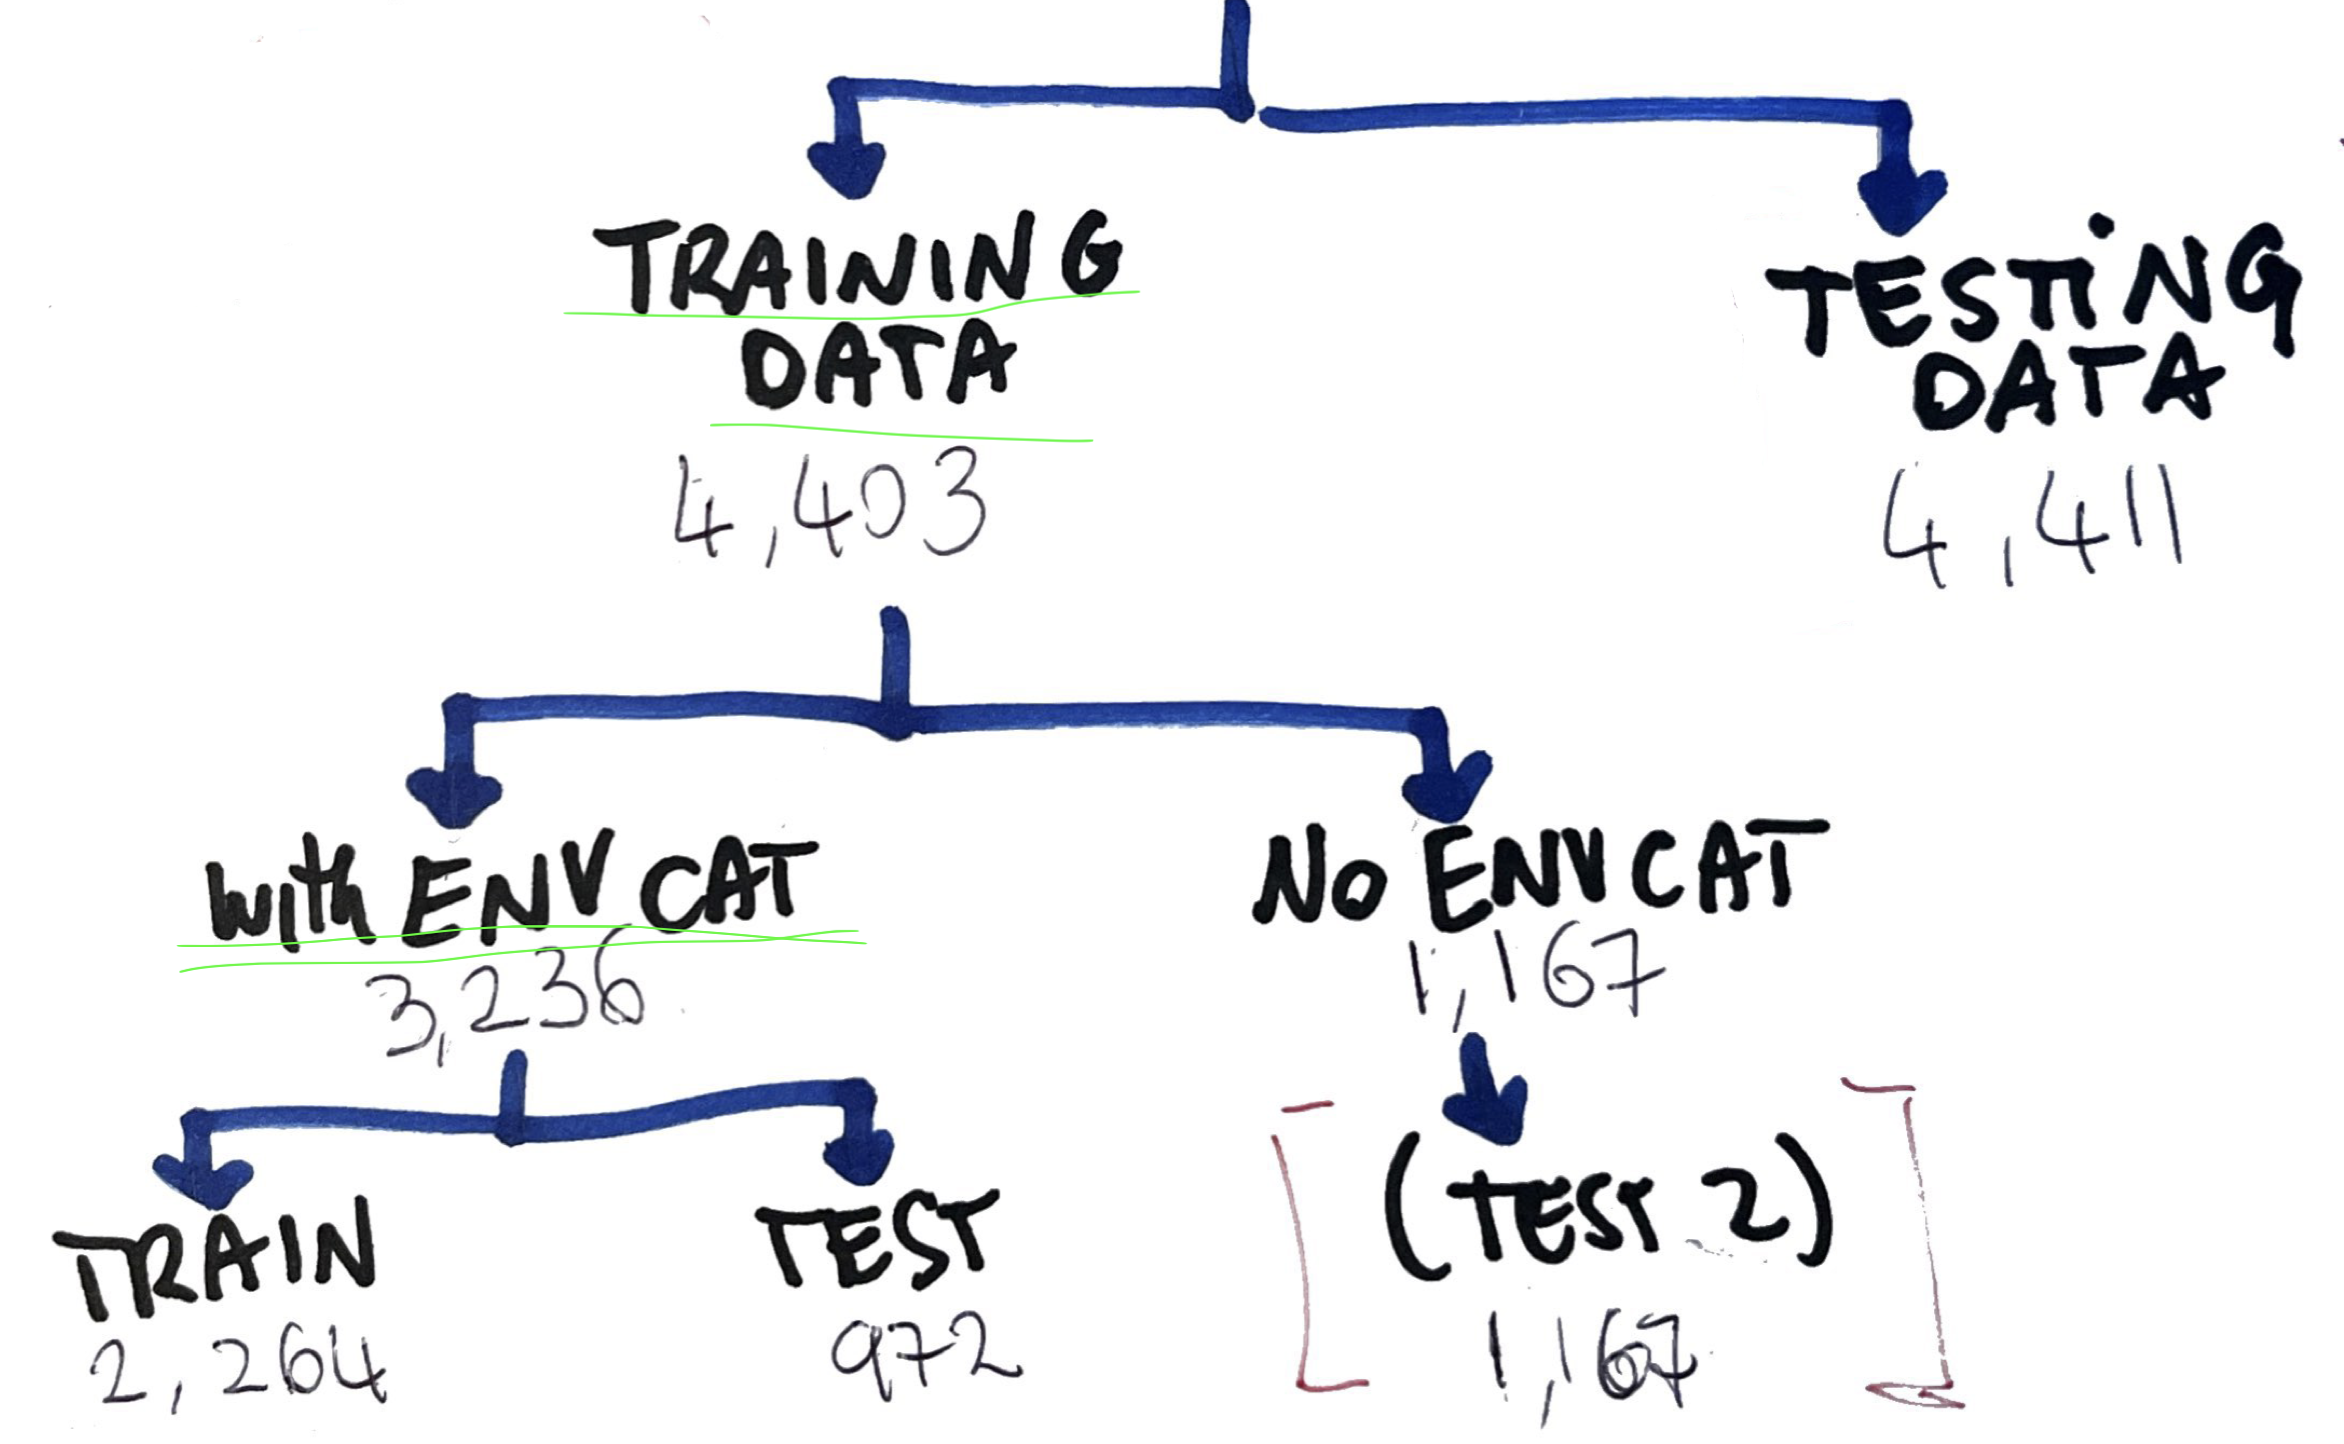 TRAINING
DATA
4,403
TESTiNG
DATA
4,411
with ENV CAT
3,236
No ENV CAT
1,167
TRAIN
2,264
TEST
972
(TEST 2)
1,167